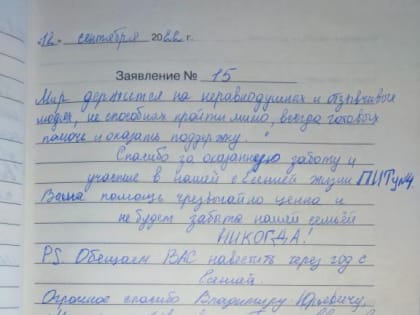 «12» сентября 2022 г.
Заявление № 15
Мир держится на неравнодушных и отзывчивых
людях, не способных пройти мимо, всегда готовых
помочь и оказать поддержку.
Спасибо за оказанную заботу и
участие в нашей с Ксенией жизни
Ваша помощь чрезвычайно ценна и
не будет забыта нашей семьёй
НИКОГДА!
PS. Обещаем ВАС навестить через год с
Ксенией.
Огромное спасибо Владимиру Юрьевичу,